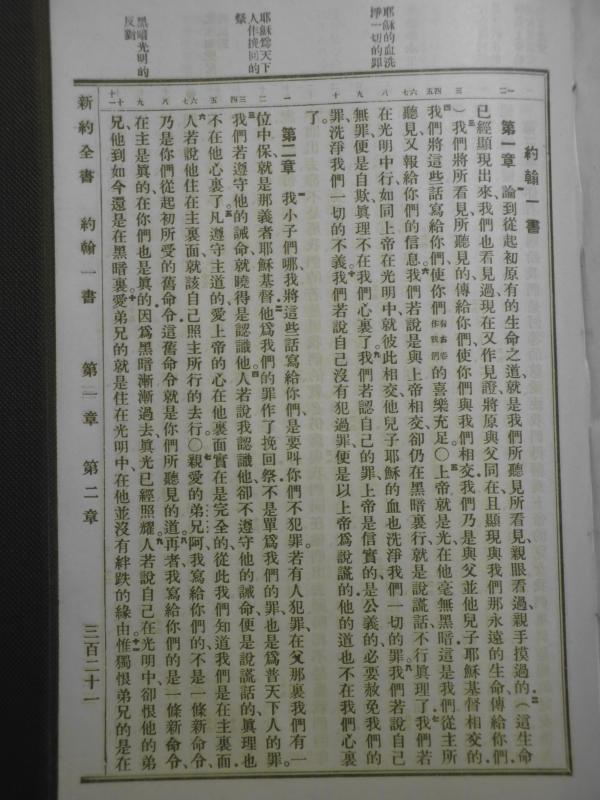 耶穌的血洗
淨一切的罪
耶穌爲天下
人作挽回的
祭
黑暗光明的
反對
約翰一書
第一章 論到從起初原有的生命之道、就是我們所聽見所看見、親眼看過、親手摸過的（這生命
已經顯現出來、我們也看見過、現在又作見證、將原與父同在、且顯現與我們那永遠的生命、傳給你們
）我們將所看見所聽見的傳給你們、使你們與我們相交、我們乃是與父並他兒子耶穌基督相交的
我們將這些話寫給你們、使你們有古卷作我們的喜樂充足〇上帝就是光、在他毫無黑暗、這是我們從主所
聽見、又報給你們的信息、我們若說是與上帝相交、卻仍在黑暗裏行、就是說謊話、不行眞理了、我們若
在光明中行、如同上帝在光明中、就彼此相交、他兒子耶穌的血也洗淨我們一切的罪、我們若說自己
無罪、便是自欺、眞理不在我們心裏了、我們若認自己的罪、上帝是信實的、是公義的、必要赦免我們的
罪、洗淨我們一切的不義、我們若說自己沒有犯過罪、便是以上帝爲說謊的、他的道也不在我們心裏
了。
第二章 我小子們哪、我將這些話寫給你們、是要叫你們不犯罪、若有人犯罪、在父那裏我們有一
位中保、就是那義者耶穌基督、他爲我們的罪作了挽回祭、不是單爲我們的罪、也是爲普天下人的罪。
我們若遵守他的誡命、就曉得是認識他、人若說我認識他、卻不遵守他的誡命、便是說謊話的、眞理也
不在他心裏了、凡遵守主道的、愛上帝的心在他裏面實在是完全的、從此我們知道我們是在主裏面
人若說他住在主裏面、就該自己照主所行的去行〇親愛的弟兄阿、我寫給你們的、不是一條新命令、
乃是你們從起初所受的舊命令、這舊命令就是你們所聽見的道、再者我寫給你們的、是一條新命令、
在主是眞的、在你們也是眞的、因爲黑暗漸漸過去、眞光已經照耀、人若說自己在光明中、卻恨他的弟
兄、他到如今還是在黑暗裏、愛弟兄的、就是住在光明中、在他並沒有絆跌的緣由、惟獨恨弟兄的是在
新約全書 約翰一書 第一章 第二章 三百二十一